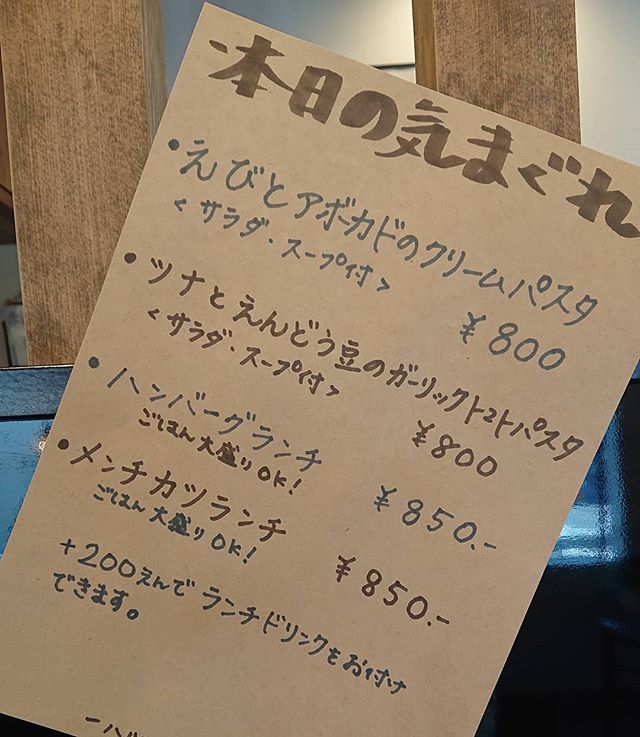 本日の気まぐれ
・えびとアボカドのクリームパスタ
<サラダ・スープ付>
¥800
・ツナとえんどう豆のガーリックトマトパスタ
<サラダ・スープ付>
¥800
・ハンバーグランチ
ごはん大盛りOK!
¥850.-
・メンチカツランチ
ごはん大盛りOK!
¥850.-
+200えんでランチドリンクをお付け
できます。